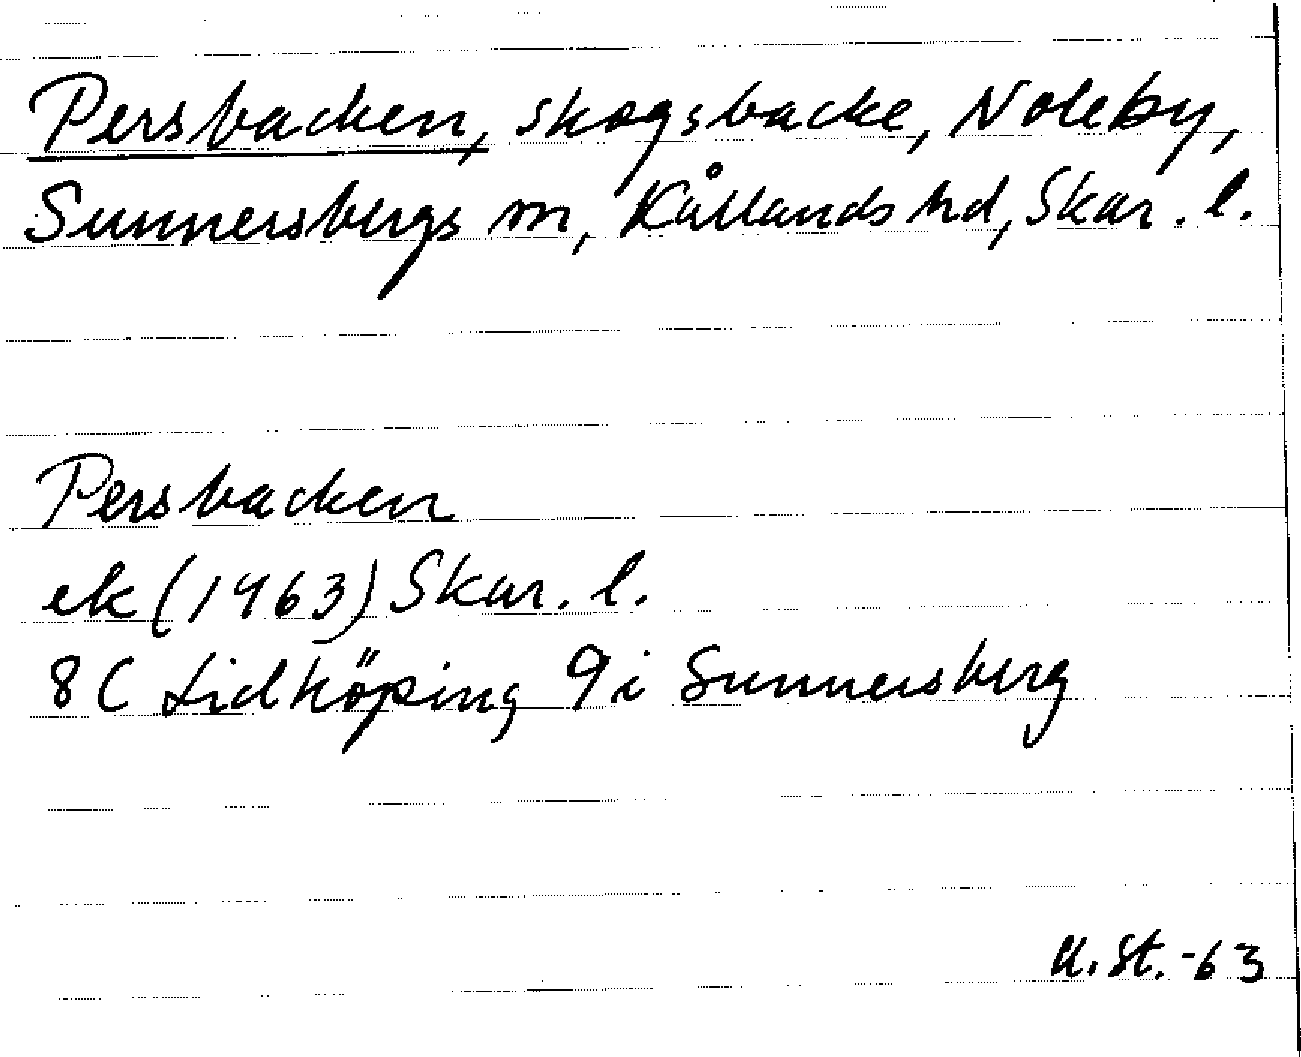 Persbacken, skogsbacke, Noleby,
Sunnersbergs sn, Kållands hd, Skar. l.
Persbacken
ek (1963) Skar. l.
8C Lidköping 9i Sunnersberg
U. St. -63